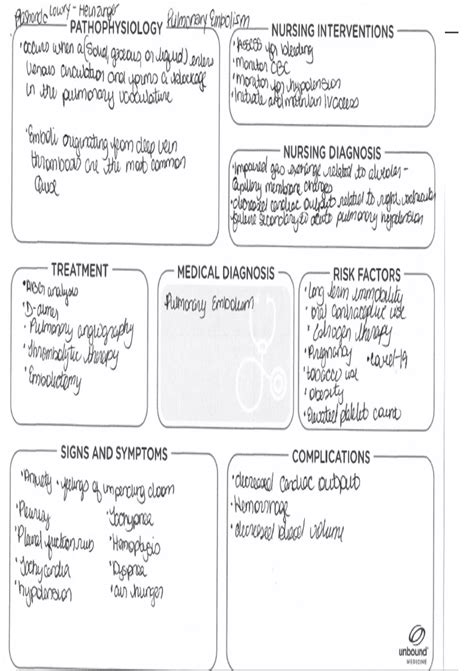 Lowry - Heinzinger
Pulmonary Embolism
PATHOPHYSIOLOGY
•occurs when a (solid, gaseous or liquid) enters
venous circulation and forms a blockage
in the pulmonary vasculature
•Emboli originating from deep vein
thrombosis are the most common
cause
NURSING INTERVENTIONS
•Assess for bleeding
•Monitor CBC
•monitor for hypotension
•initiate and maintain IV access
NURSING DIAGNOSIS
•Impaired gas exchange related to alveolar-
capillary membrane changes
•decreased cardiac output related to right ventricular
failure secondary to acute pulmonary hypertension
TREATMENT
•ABG analysis
•D-dimer
•Pulmonary angiography
•Thrombolytic therapy
•Embolectomy
MEDICAL DIAGNOSIS
Pulmonary Embolism
RISK FACTORS
•Long term immobility
•oral contraceptive use
•Estrogen therapy
•Pregnancy •covid-19
•tobacco use
•obesity
•Elevated platelet count
SIGNS AND SYMPTOMS
•Anxiety •feelings of impending doom
•Pleurisy •Tachypnea
•Pleural friction rub •Hemoptysis
•Tachycardia •Dyspnea
•hypotension •air hunger
COMPLICATIONS
•decreased cardiac output
•Hemorrhage
•decreased blood volume
unbound™
MEDICINE